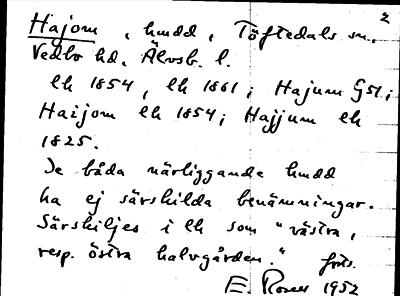 2
Hajom, hmdd, Töftedals sn.,
Vedbo hd, Älvsb. l.
lk 1854, lk 1861; Hajum GSt.;
Haijom lk 1854; Hajjum lk
1825.
De båda närliggande hmdd
ha ej särskilda benämningar.
Särskiljes i lk som "västra,
resp. östra halvgården." forts.
E. Rosell 1952